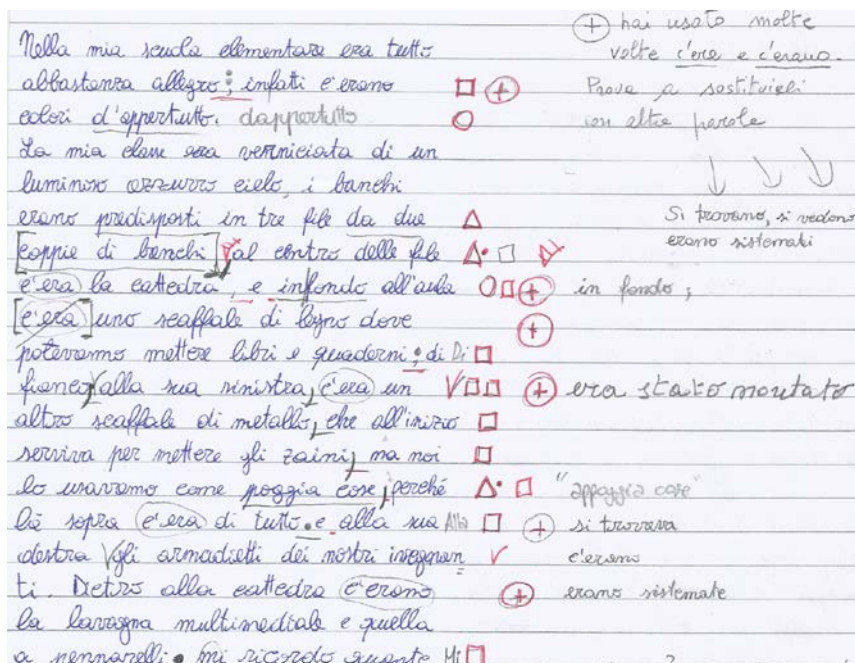 Nella mia scuola elementare era tutto
abbastanza allegro; infatti c'erano
colori d'appertutto. dappertutto
La mia classe era verniciata di un
luminoso azzurro cielo, i banchi
erano predisposti in tre file da due
[coppie di banchi] al centro delle file
c'era la cattedra, e infondo all'aula
[c'era] uno scaffale di legno dove
potevamo mettere libri e quaderni; di Di
fianco, alla sua sinistra, c'era un
altro scaffale di metallo, che all'inizio
serviva per mettere gli zaini, ma noi
lo usavamo come poggia cose, perché
là sopra c'era di tutto. e alla sua Alla
destra gli armadietti dei nostri insegnan
ti. Dietro alla cattedra c'erano
la lavagna multimediale e quella
a pennarelli. mi ricordo quante Mi
+ hai usato molte
volte c'era e c'erano.
Prova a sostituirli
con altre parole
Si trovano, si vedono
erano sistemati
in fondo;
+ era stato montato
"appoggia cose"
+ si trovava
c'erano
+ erano sistemate